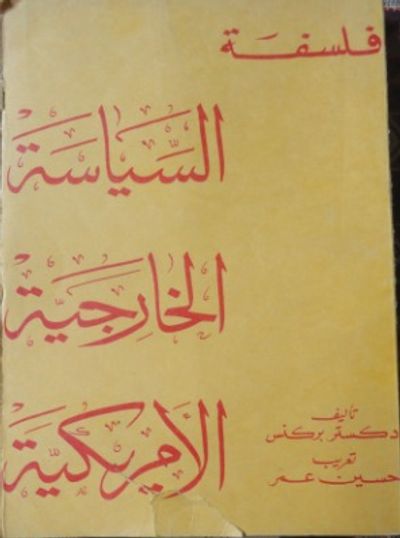 فلسفة
السّياسة
الخارجيّة
الأمريكيّة
تأليف
دكستر بركنس
تعريب
حسين عمر